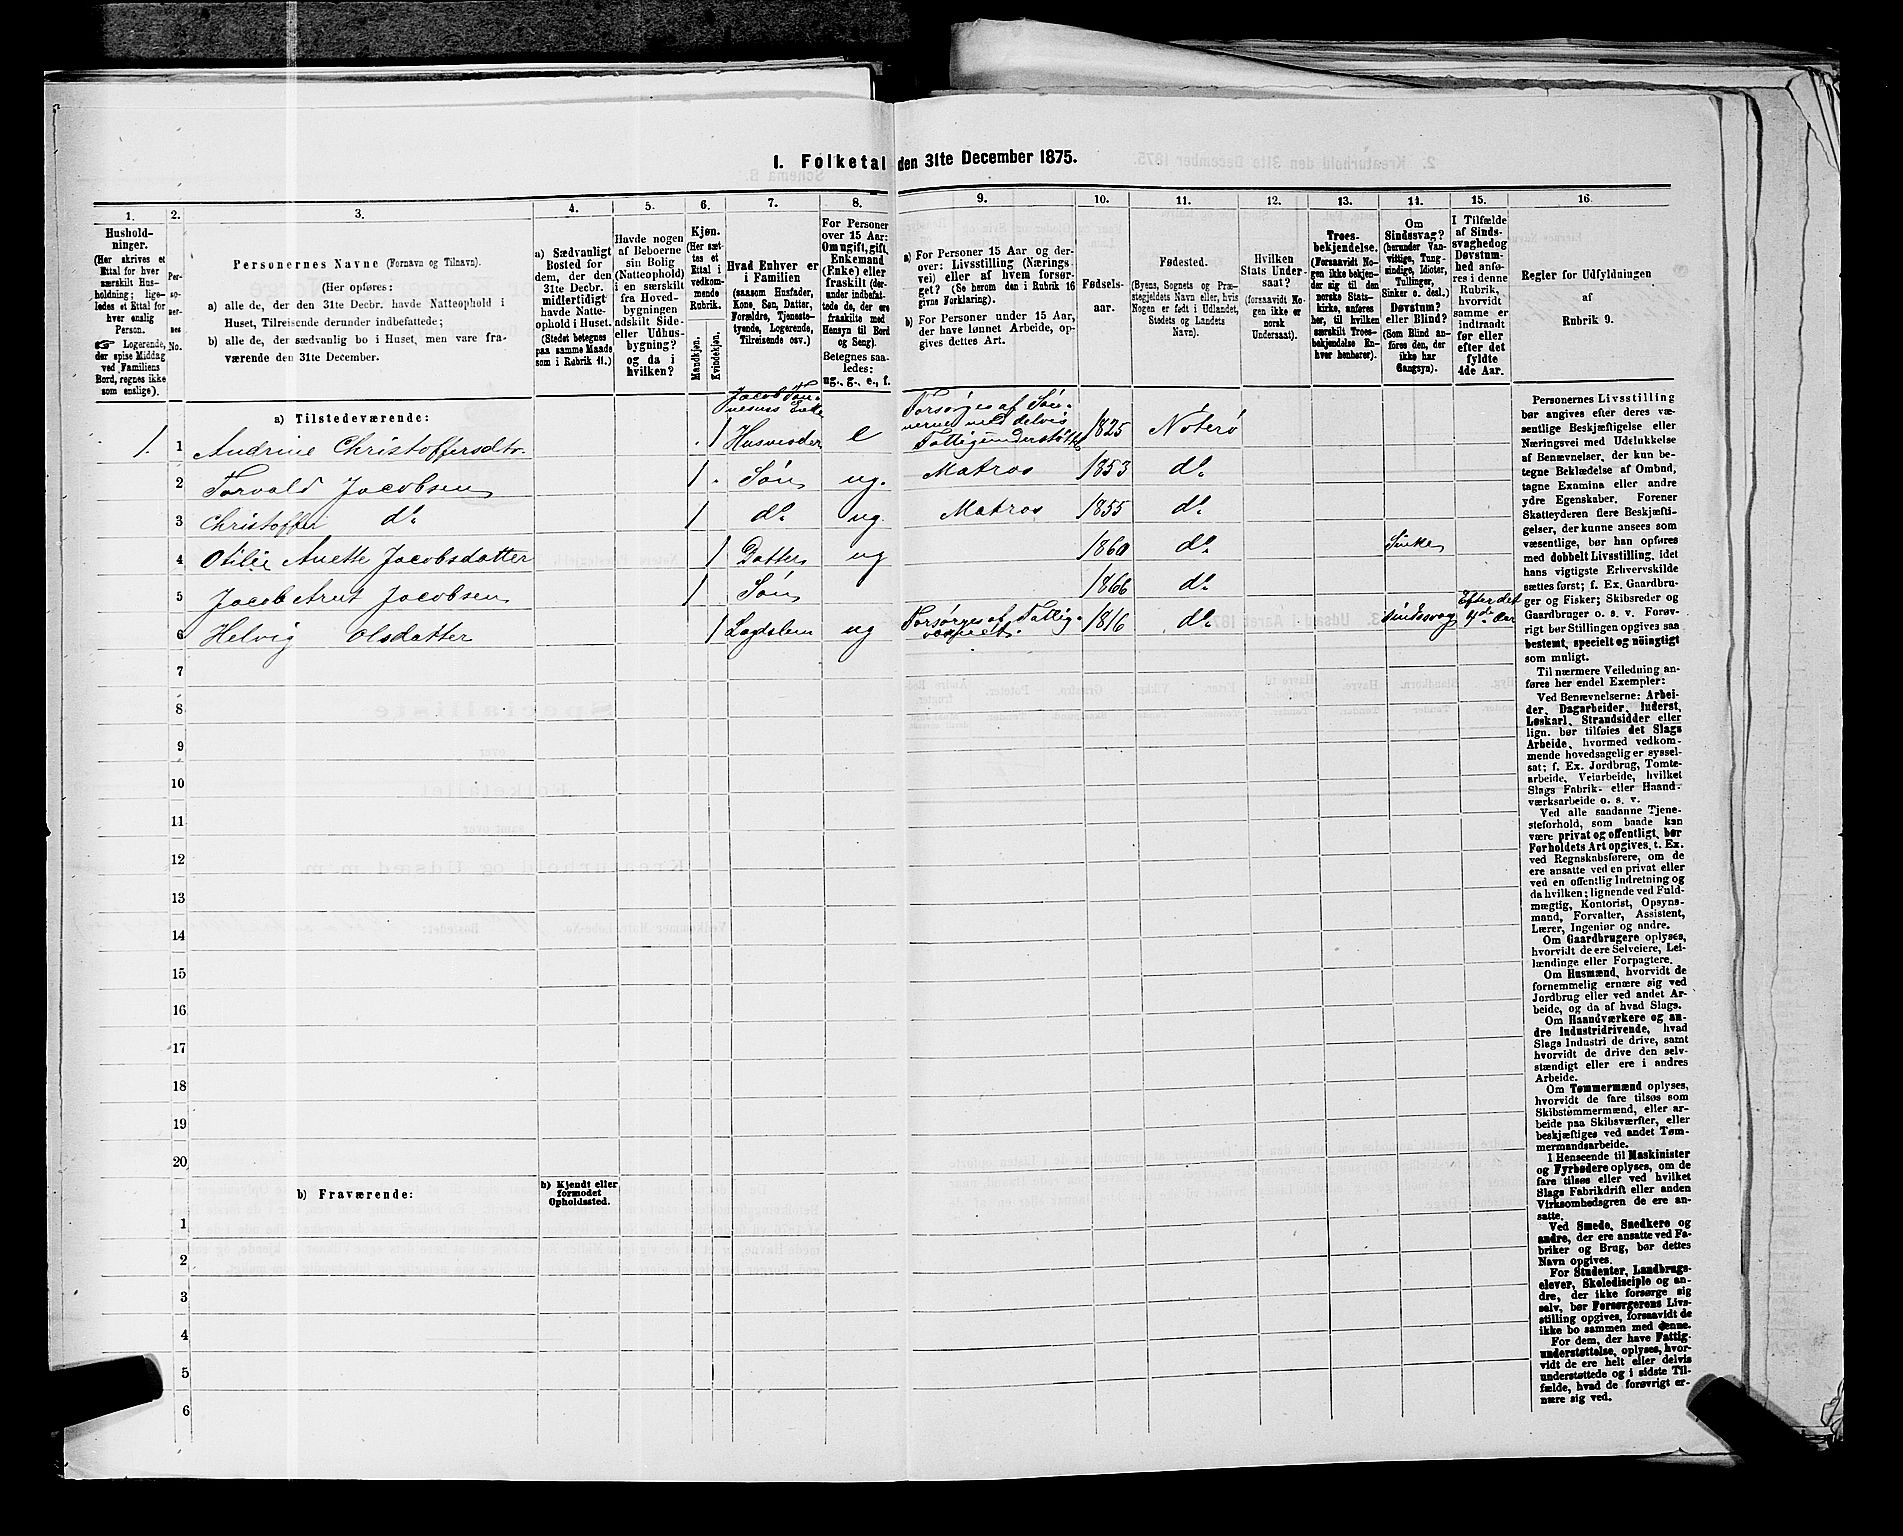 1. Folketal den 31te December 1875.
1.
2.
3.
4.
5.
6.
7.
8.
9.
10.
11.
12.
13.
14.
15.
16.
Hushold-
ninger.
(Her skrives et
Ettal for hver
særskilt Hus-
holdning; lige-
ledes et Ettal for
hver enslig
Person.
☞ Logerende,
der spise Middag
ved Familiens
Bord, regnes ikke
som enslige).
Per-
so-
ner-
nes
No.
Personernes Navne (Fornavn og Tilnavn).
(Her opføres:
a) alle de, der den 31te Decbr. havde Natteophold i
Huset, Tilreisende derunder indbefattede;
b) alle de, der sædvanlig bo i Huset, men vare fra-
værende den 31te December.
a) Sædvanligt
Bosted for
dem, der den
31te Decbr.
midlertidigt
havde Natte-
ophold i Huset.
(Stedet betegnes
paa samme Maade
som i Rubrik 11.)
Havde nogen
af Beboerne
sin Bolig
(Natteophold)
i en særskilt
fra Hoved-
bygningen
adskilt Side-
eller Udhus-
bygning?
og da i
hvilken?
Kjøn.
(Her sæt-
tes et
Ettal i
vedkom-
mende
Rubrik.
Mandkjøn.
Kvindekjøn.
Hvad Enhver er
i Familien
(saasom Husfader,
Kone, Søn, Datter,
Forældre, Tjeneste-
tyende, Logerende,
Tilreisende osv.)
For Personer
over 15 Aar:
Om ugift, gift,
Enkemand
(Enke) eller
fraskilt (der-
under indbefat-
tede de, der ere
fraskilte med
Hensyn til Bord
og Seng).
Betegnes saa-
ledes:
ug., g., e., f.
a) For Personer 15 Aar og der-
over: Livsstilling (Nærings-
vei) eller af hvem forsør-
get? (Se herom den i Rubrik 16
givne Forklaring).
b) For Personer under 15 Aar,
der have lønnet Arbeide, op-
gives dettes Art.
Fødsels-
aar.
Fødested.
(Byens, Sognets og Præ-
stegjeldets Navn eller, hvis
Nogen er født i Udlandet,
Stedets og Landets
Navn).
Hvilken
Stats Under-
saat?
(forsaavidt No-
gen ikke er
norsk
Undersaat).
Troes-
bekjendelse.
(Forsaavidt No-
gen ikke bekjen-
der sig til den
norske Stats-
kirke, anføres
her, til hvilken
særskilt Troes-
bekjendelse En-
hver henhører).
Om
Sindssvag?
(herunder Van-
vittige, Tung-
sindige, Idioter,
Tullinger,
Sinker o. desl.)
Døvstum?
eller Blind?
(Som Blind an-
føres den, der
ikke har
Gangsyn).
I Tilfælde
af Sinds-
svaghed og
Døvstum-
hed anfø-
res i denne
Rubrik,
hvorvidt
samme er
indtraadt
før eller
efter det
fyldte
4de Aar.
Regler for Udfyldningen
af
Rubrik 9.
a) Tilstedeværende:
1. 1 Andrine Christoffersdtr. 1 Jacob Tøn-
nesens Enke
Husmoder e Forsørges af Søn-
nerne med delvis
Fattigunderstøttelse 1825 Nøterø
2 Torvald Jacobsen 1 Søn ug. Matros 1853 do
3 Christoffer do 1 do ug. Matros 1855 do
4 Otilie Anette Jacobsdatter 1 Datter ug 1860 do Sinke
5 Jacob Arnt Jacobsen 1 Søn 1866 do
6 Helvig Olsdatter 1 Lægdslem ug Forsørges af Fattig-
væsenet. 1816 do Sindssvag Efter det
4de Aar
7
8
9
10
11
12
13
14
15
16
17
18
19
20
b) Fraværende:
b) Kjendt eller
formodet
Opholdssted.
1
2
3
4
5
6
Personernes Livsstilling
bør angives efter deres væ-
sentlige Beskjæftigelse eller
Næringsvei med Udelukkelse
af Benævnelser, der kun be-
tegne Beklædelse af Ombud,
tagne Examina eller andre
ydre Egenskaber. Forener
Skatteyderen flere Beskjæfti-
gelser, der kunne ansees som
væsentlige, bør han opføres
med dobbelt Livsstilling, idet
hans vigtigste Erhvervskilde
sættes først; f. Ex. Gaardbru-
ger og Fisker; Skibsreder og
Gaardbruger o. s. v. Forøv-
rigt bør Stillingen opgives saa
bestemt, specielt og nöingtigt
som muligt.
Til nærmere Veiledning an-
føres her endel Exempler:
Ved Benævnelserne: Arbei-
der, Dagarbeider, Inderst,
Løskarl, Strandsidder eller
lign. bør tilføies det Slags
Arbeide, hvormed vedkom-
mende hovedsagelig er syssel-
sat; f. Ex. Jordbrug, Tomte-
arbeide, Veiarbeide, hvilket
Slags Fabrik- eller Haand-
værksarbeide o. s. v.
Ved alle saadanne Tjene-
steforhold, som baade kan
være privat og offentligt, bør
Forholdets Art opgives, t. Ex.
ved Regnskabsførere, om de
ere ansatte ved en privat eller
ved en offentlig Indretning og
da hvilken; lignende ved Fuld-
mægtig, Kontorist, Opsyns-
mand, Forvalter, Assistent,
Lærer, Ingeniør og andre.
Om Gaardbrugere oplyses,
hvorvidt de ere Selveiere, Lei-
lændinge eller Forpagtere.
Om Husmænd, hvorvidt de
fornemmelig ernære sig ved
Jordbrug eller ved andet Ar-
beide, og da af hvad Slags.
Om Haandværkere og an-
dre Industridrivende, hvad
Slags Industri de drive, samt
hvorvidt de drive den selv-
stændigt eller ere i andres
Arbeide.
Om Tømmermænd oplyses,
hvorvidt de fare tilsøs som
Skibstømmermænd, eller ar-
beide paa Skibsværfter, eller
beskjæftiges ved andet Tøm-
mermandsarbeide.
I Henseende til Maskinister
og Fyrbødere oplyses, om de
fare tilsøs eller ved hvilket
Slags Fabrikdrift eller anden
Virksomhedsgren de ere an-
satte.
Ved Smede, Snedkere og
andre, der ere ansatte ved Fa-
briker og Brug, bør dettes
Navn opgives.
For Studenter, Landbrugs-
elever, Skoledisciple og an-
dre, der ikke forsørge sig
selv, bør Forsørgerens Livs-
stilling opgives, forsaavidt de
ikke bo sammen med denne.
For dem, der have Fattig-
understøttelse, oplyses, hvor-
vidt de ere helt eller delvis
understøttede og i sidste Til-
fælde, hvad de forøvrigt er-
nære sig ved.